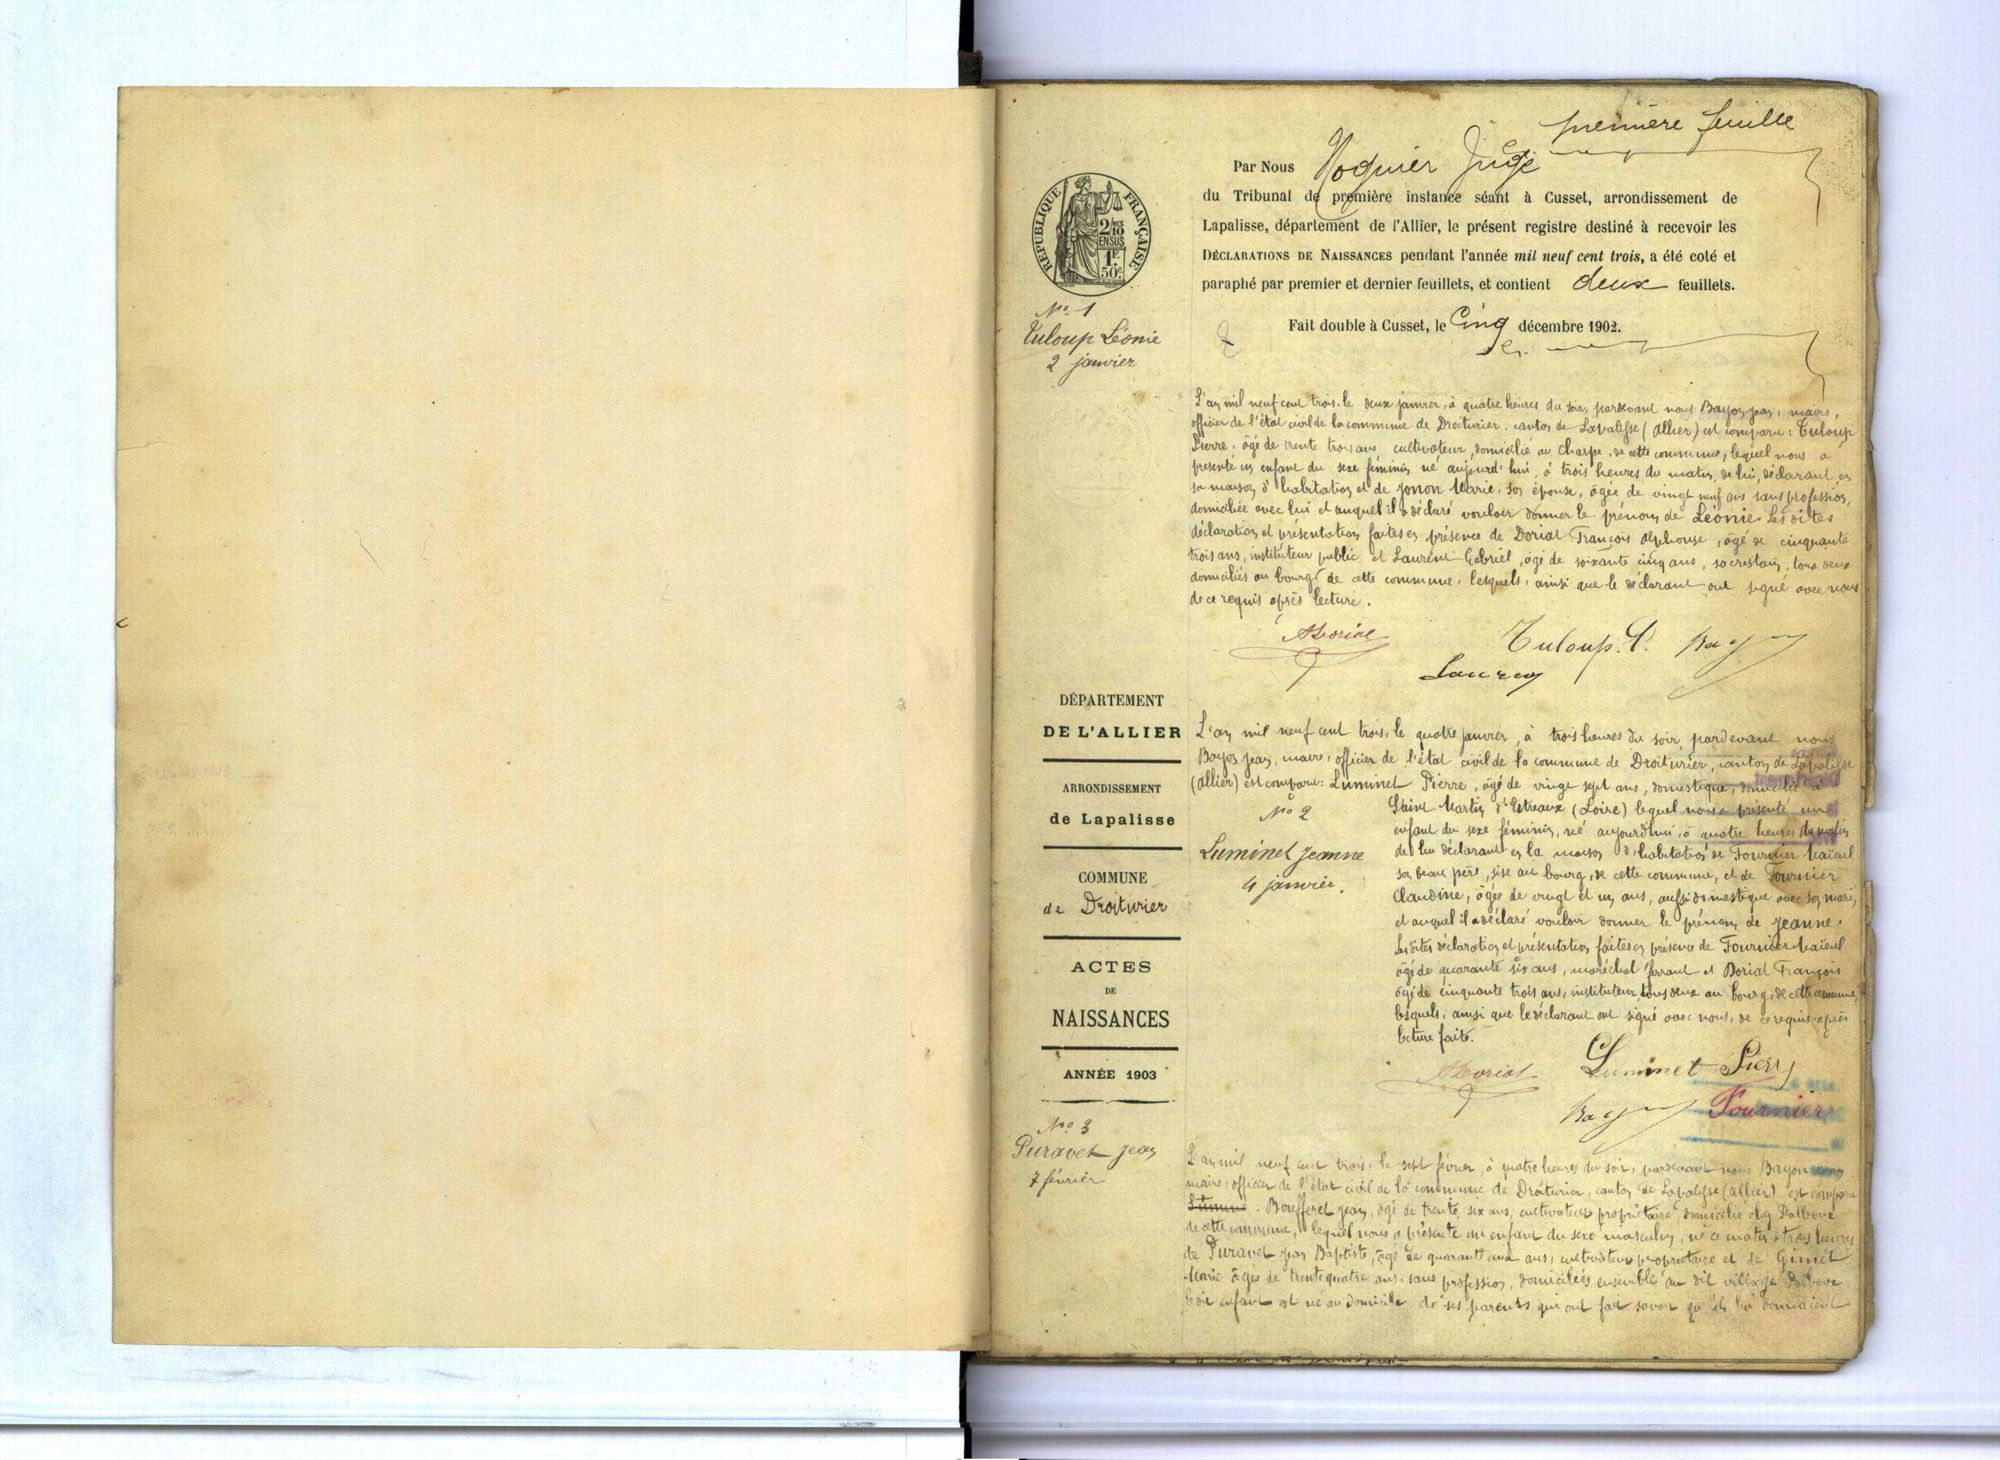 première feuille
Par Nous Noquier Juge
du Tribunal de première instance séant à Cusset, arrondissement de
Lapalisse, département de l'Allier, le présent registre destiné à recevoir les
DÉCLARATIONS DE NAISSANCES pendant l'année mil neuf cent trois, a été coté et
paraphé par premier et dernier feuillets, et contient deux feuillets.
Fait double à Cusset, le Cinq décembre 1902.
RÉPUBLIQUE FRANÇAISE
2/10
EN SUS
1F
50c
No 1
Tuloup Léonie
2 janvier
L'an mil neuf cent trois, le deux janvier, à quatre heures du soir, pardevant nous Bayon Jean, maire,
officier de l'état civil de la commune de Droiturier, canton de Lapalisse (Allier) est comparu: Tuloup
Pierre, âgé de trente trois ans, cultivateur, domicilié au Charpe, de cette commune, lequel nous a
présenté un enfant du sexe féminin né aujourd'hui, à trois heures du matin, de lui, déclarant en
sa maison d'habitation et de Jonon Marie, son épouse, âgée de vingt neuf ans sans profession,
domiciliée avec lui et auquel il a déclaré vouloir donner le prénom de Léonie. Les dites
déclaration et présentation faites en présence de Doriat François Alphonse, âgé de cinquante
trois ans, instituteur public et Laurent Gabriel, âgé de soixante cinq ans, sacristain, tous deux
domiciliés au bourg de cette commune, lesquels, ainsi que le déclarant ont signé avec nous
de ce requis après lecture.
ADoriat Tuloup. P. Bayon
Laurent
DÉPARTEMENT
DE L'ALLIER
ARRONDISSEMENT
de Lapalisse
COMMUNE
de Droiturier
ACTES
DE
NAISSANCES
ANNÉE 1903
L'an mil neuf cent trois, le quatre janvier, à trois heures du soir pardevant nous
Bayon Jean, maire, officier de l'état civil de la commune de Droiturier, canton de Lapalisse
(Allier) est comparu: Luminet Pierre, âgé de vingt sept ans, domestique, domicilié à
No 2
Luminet Jeanne
4 janvier.
Saint Martin d'Estreaux (Loire) lequel nous a présenté un
enfant du sexe féminin, né aujourd'hui, à quatre heures du matin
de lui déclarant en la maison d'habitation de Fournier Maïeul
son beau père, sise au bourg, de cette commune, et de Fournier
Claudine, âgée de vingt et un ans, aussi domestique avec son mari,
et auquel il a déclaré vouloir donner le prénom de Jeanne.
Les dites déclaration et présentation faites en présence de Fournier Maïeul
âgé de quarante six ans, maréchal ferrant et Doriat François
âgé de cinquante trois ans, instituteur, tous deux au bourg, de cette commune,
lesquels, ainsi que le déclarant ont signé avec nous, de ce requis après
lecture faite.
ADoriat Luminet Pierre
Bayon Fournier
No 3
Puravet Jean
7 février
L'an mil neuf cent trois, le sept février, à quatre heures du soir, pardevant nous Bayon
maire, officier de l'état civil de la commune de Droiturier, canton de Lapalisse (Allier) est comparu
: Boufferet Jean, âgé de trente six ans, cultivateur propriétaire, domicilié chez Palboux
de cette commune, lequel nous a présenté un enfant du sexe masculin, né ce matin à trois heures
de Puravet Jean Baptiste, âgé de quarante deux ans, cultivateur propriétaire et de Gimet
Marie âgée de trente quatre ans, sans profession, domiciliés ensemble au dit village Palboux
le dit enfant est né au domicile de ses parents qui ont fait savoir qu'ils lui donnaient